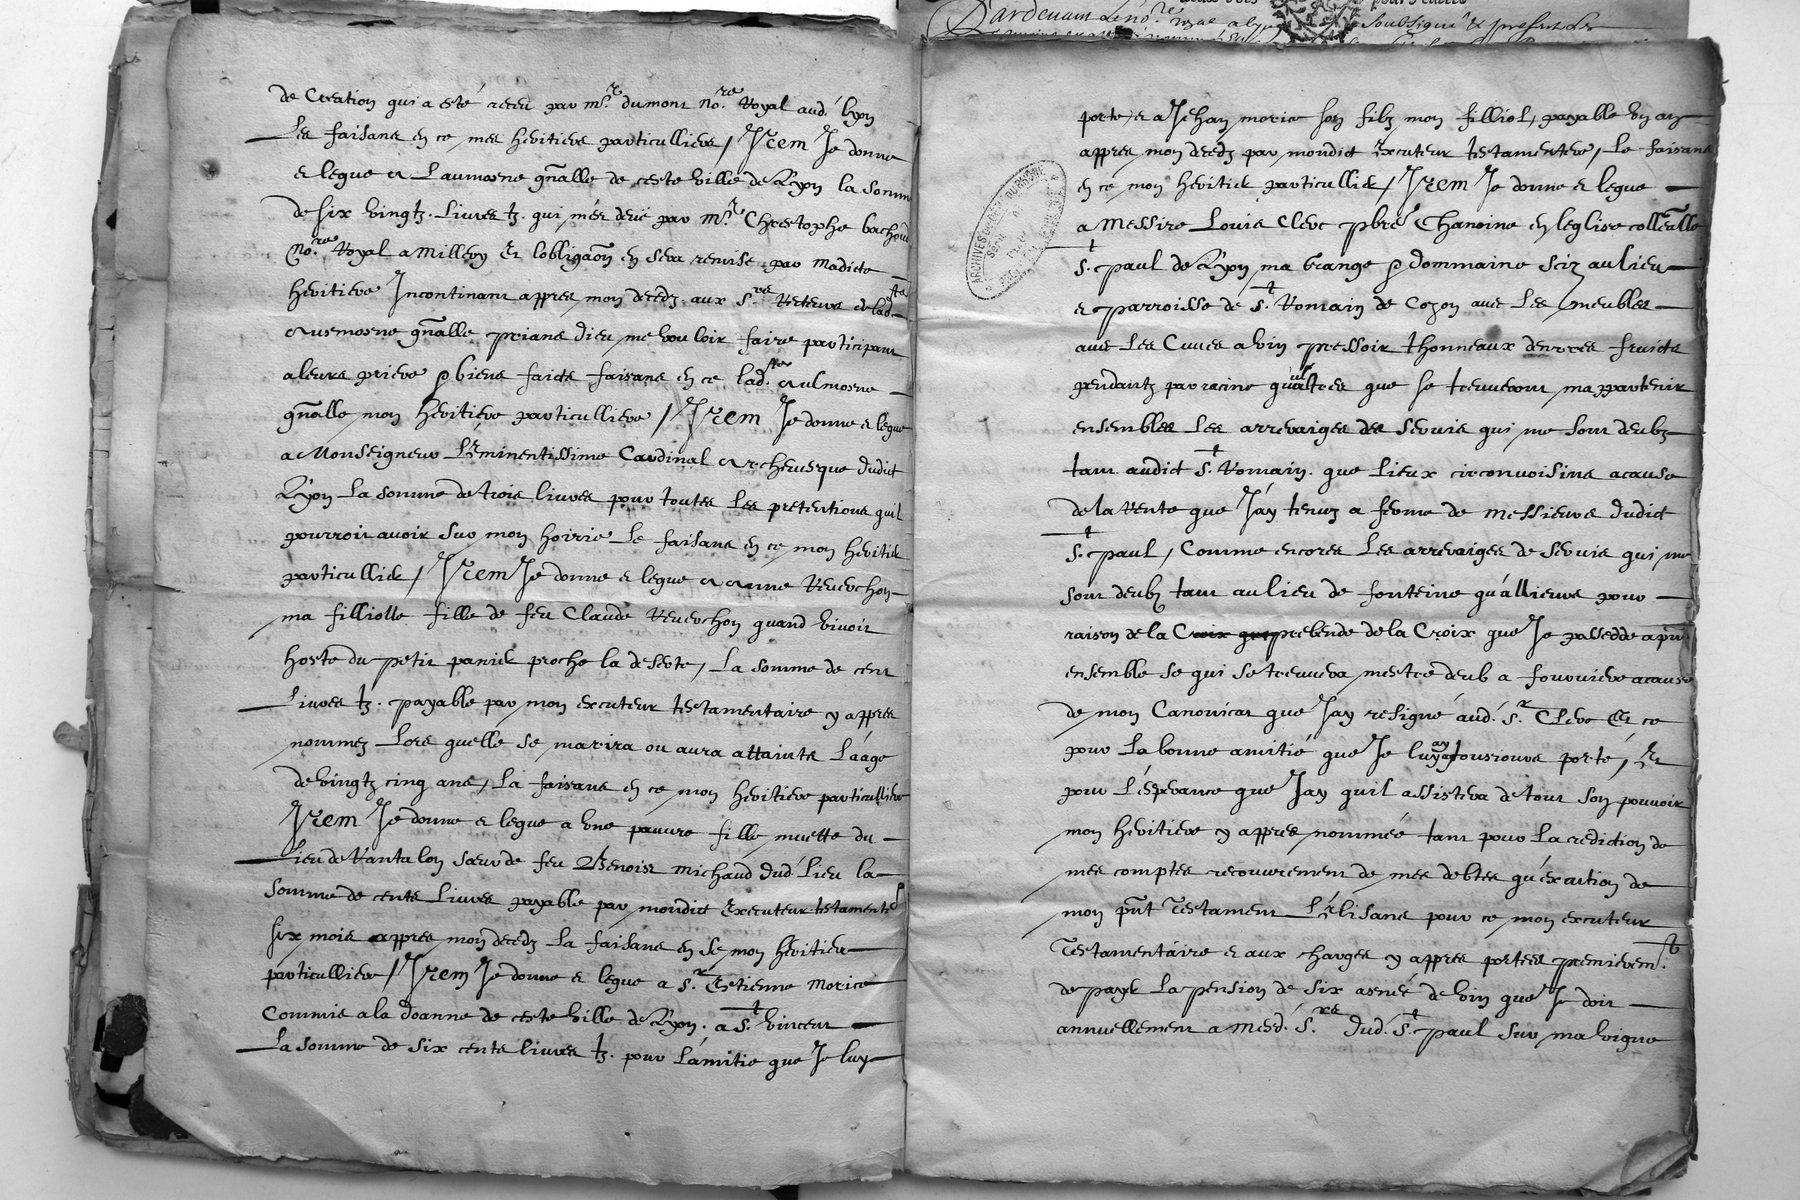 de Creation qui a esté receu par mr. dumont no.re Royal aud. lyon
Les faisans en ce mes heritiers particulliers, Item Je donne
et legue a Laumosne gnalle de ceste ville de Lyon la somme
de six vingtz Livres tz. qui mest deüe par mr. Chrestophe bachoud
No.re Royal a millery Et lobligaon en sera remise par madicte
heritiere Incontinant appres mon decedz aux S.rs Recteurs de lad.
Ausmosne gnalle priant dieu me vouloir faire participant
a leurs prieres & biens faicts faisans en ce lad.te Aulmosne
gnalle mon heritiere particulliere, Item Je donne et legue
a Monseigneur L'Eminentissime Cardinal Archevesque dudict
Lyon La somme de trois livres pour toutes Les pretentions quil
pourroit avoir sur mon hoirie Le faisans en ce mon heritier
particullier, Item Je donne et legue a anne Reverchon
ma filliolle fille de feu Claude Reverchon quand vivoit
hoste du petit panier proche la deserte, La somme de cent
Livres tz. payable par mon executeur testamentaire cy appres
nommez Lors quelle se marira ou aura attainte L'aage
de vingtz cinq ans, La faisans en ce mon heritiere particulliere
Item Je donne et legue a une pauvre fille muette du
Lieu de Vantalon sœur de feu Benoist michaud dud. Lieu la
somme de cents Livres payable par mondict Executeur testamente
six mois appres mon decedz La faisans en se mon heritiere
particulliere, Item Je donne et legue a S.r Estienne Morice
Commis a la doanne de ceste ville de Lyon. a S.t vincent
La somme de six cents livres tz. pour L'amitie que Je luy
porte, et a Jehan morice son filz mon filliol, payable un an
appres mon decedz par mondict Executeur testamentere, Le faisans
en ce mon heritier particullier, Item Je donne et legue
a Messire Louis Clerc pbre Chanoine en leglise collealle
S.t paul de Lyon ma Grange & dommaine sciz au lieu
et parroisse de S.t Romain de Cozon avec Les meubles
avec Les Cuves a vin pressoir thonneaux denrees fruicts
pendantz par racine qu'aultres que se treuveront mappartenir
ensembles Les arreraiges des servis qui me sont deubz
tant audict S.t Romain. que Lieux circonvoisins a cause
de la Rente que J'ay tenuz a ferme de messieurs dudict
S.t paul, Comme encores Les arreraiges de servis qui me
sont deubz tant au lieu de fonteine qu'allieurs pour
raison de la prebende de la Croix que Je possedde apnt
ensemble se qui se treuvera mestre deub a fourviere a cause
de mon Canonicat que Jay resigné aud. S.r Clerc Et ce
pour La bonne amitié que Je luy ay tousiours porté, Et
pour L'esperance que Jay quil assistera de tout son pouvoir
mon heritiere cy appres nommée tant pour La rediction de
mes comptes recouvrement de mes debtes qu'exaution de
mon pnt Testament L'Elisans pour ce mon executeur
Testamentaire et aux charges cy appres portees premierem.t
de payer La pension de six asnée de vin que Je doit
annuellement a mesd. S.rs dud. S.t paul sur ma vigne